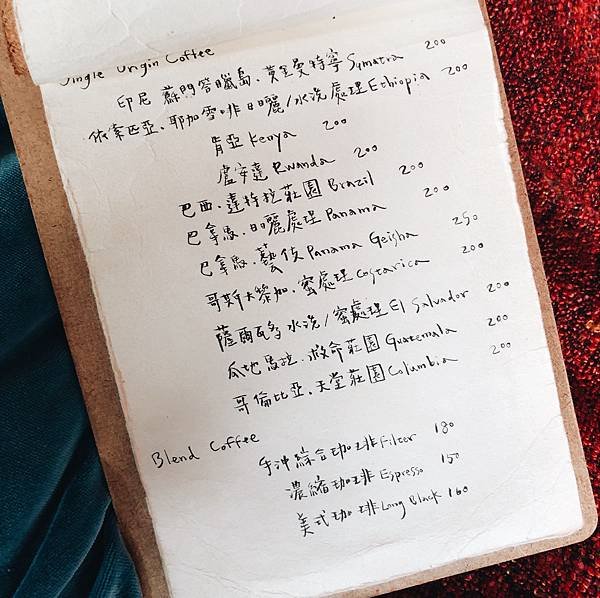 Single Origin Coffee
印尼 蘇門答臘島、黃金曼特寧 Sumatra 200
依索匹亞、耶加雪啡 日曬/水洗處理 Ethiopia 200
肯亞 Kenya 200
盧安達 Rwanda 200
巴西、達特拉莊園 Brazil 200
巴拿馬、日曬處理 Panama 200
巴拿馬、藝伎 Panama Geisha 250
哥斯大黎加、蜜處理 Costarica 200
薩爾瓦多 水洗/蜜處理 El Salvador 200
瓜地馬拉、救命莊園 Guatemala 200
哥倫比亞、天堂莊園 Columbia 200
Blend Coffee
手沖綜合咖啡 Filter 180
濃縮咖啡 Espresso 150
美式咖啡 Long Black 160